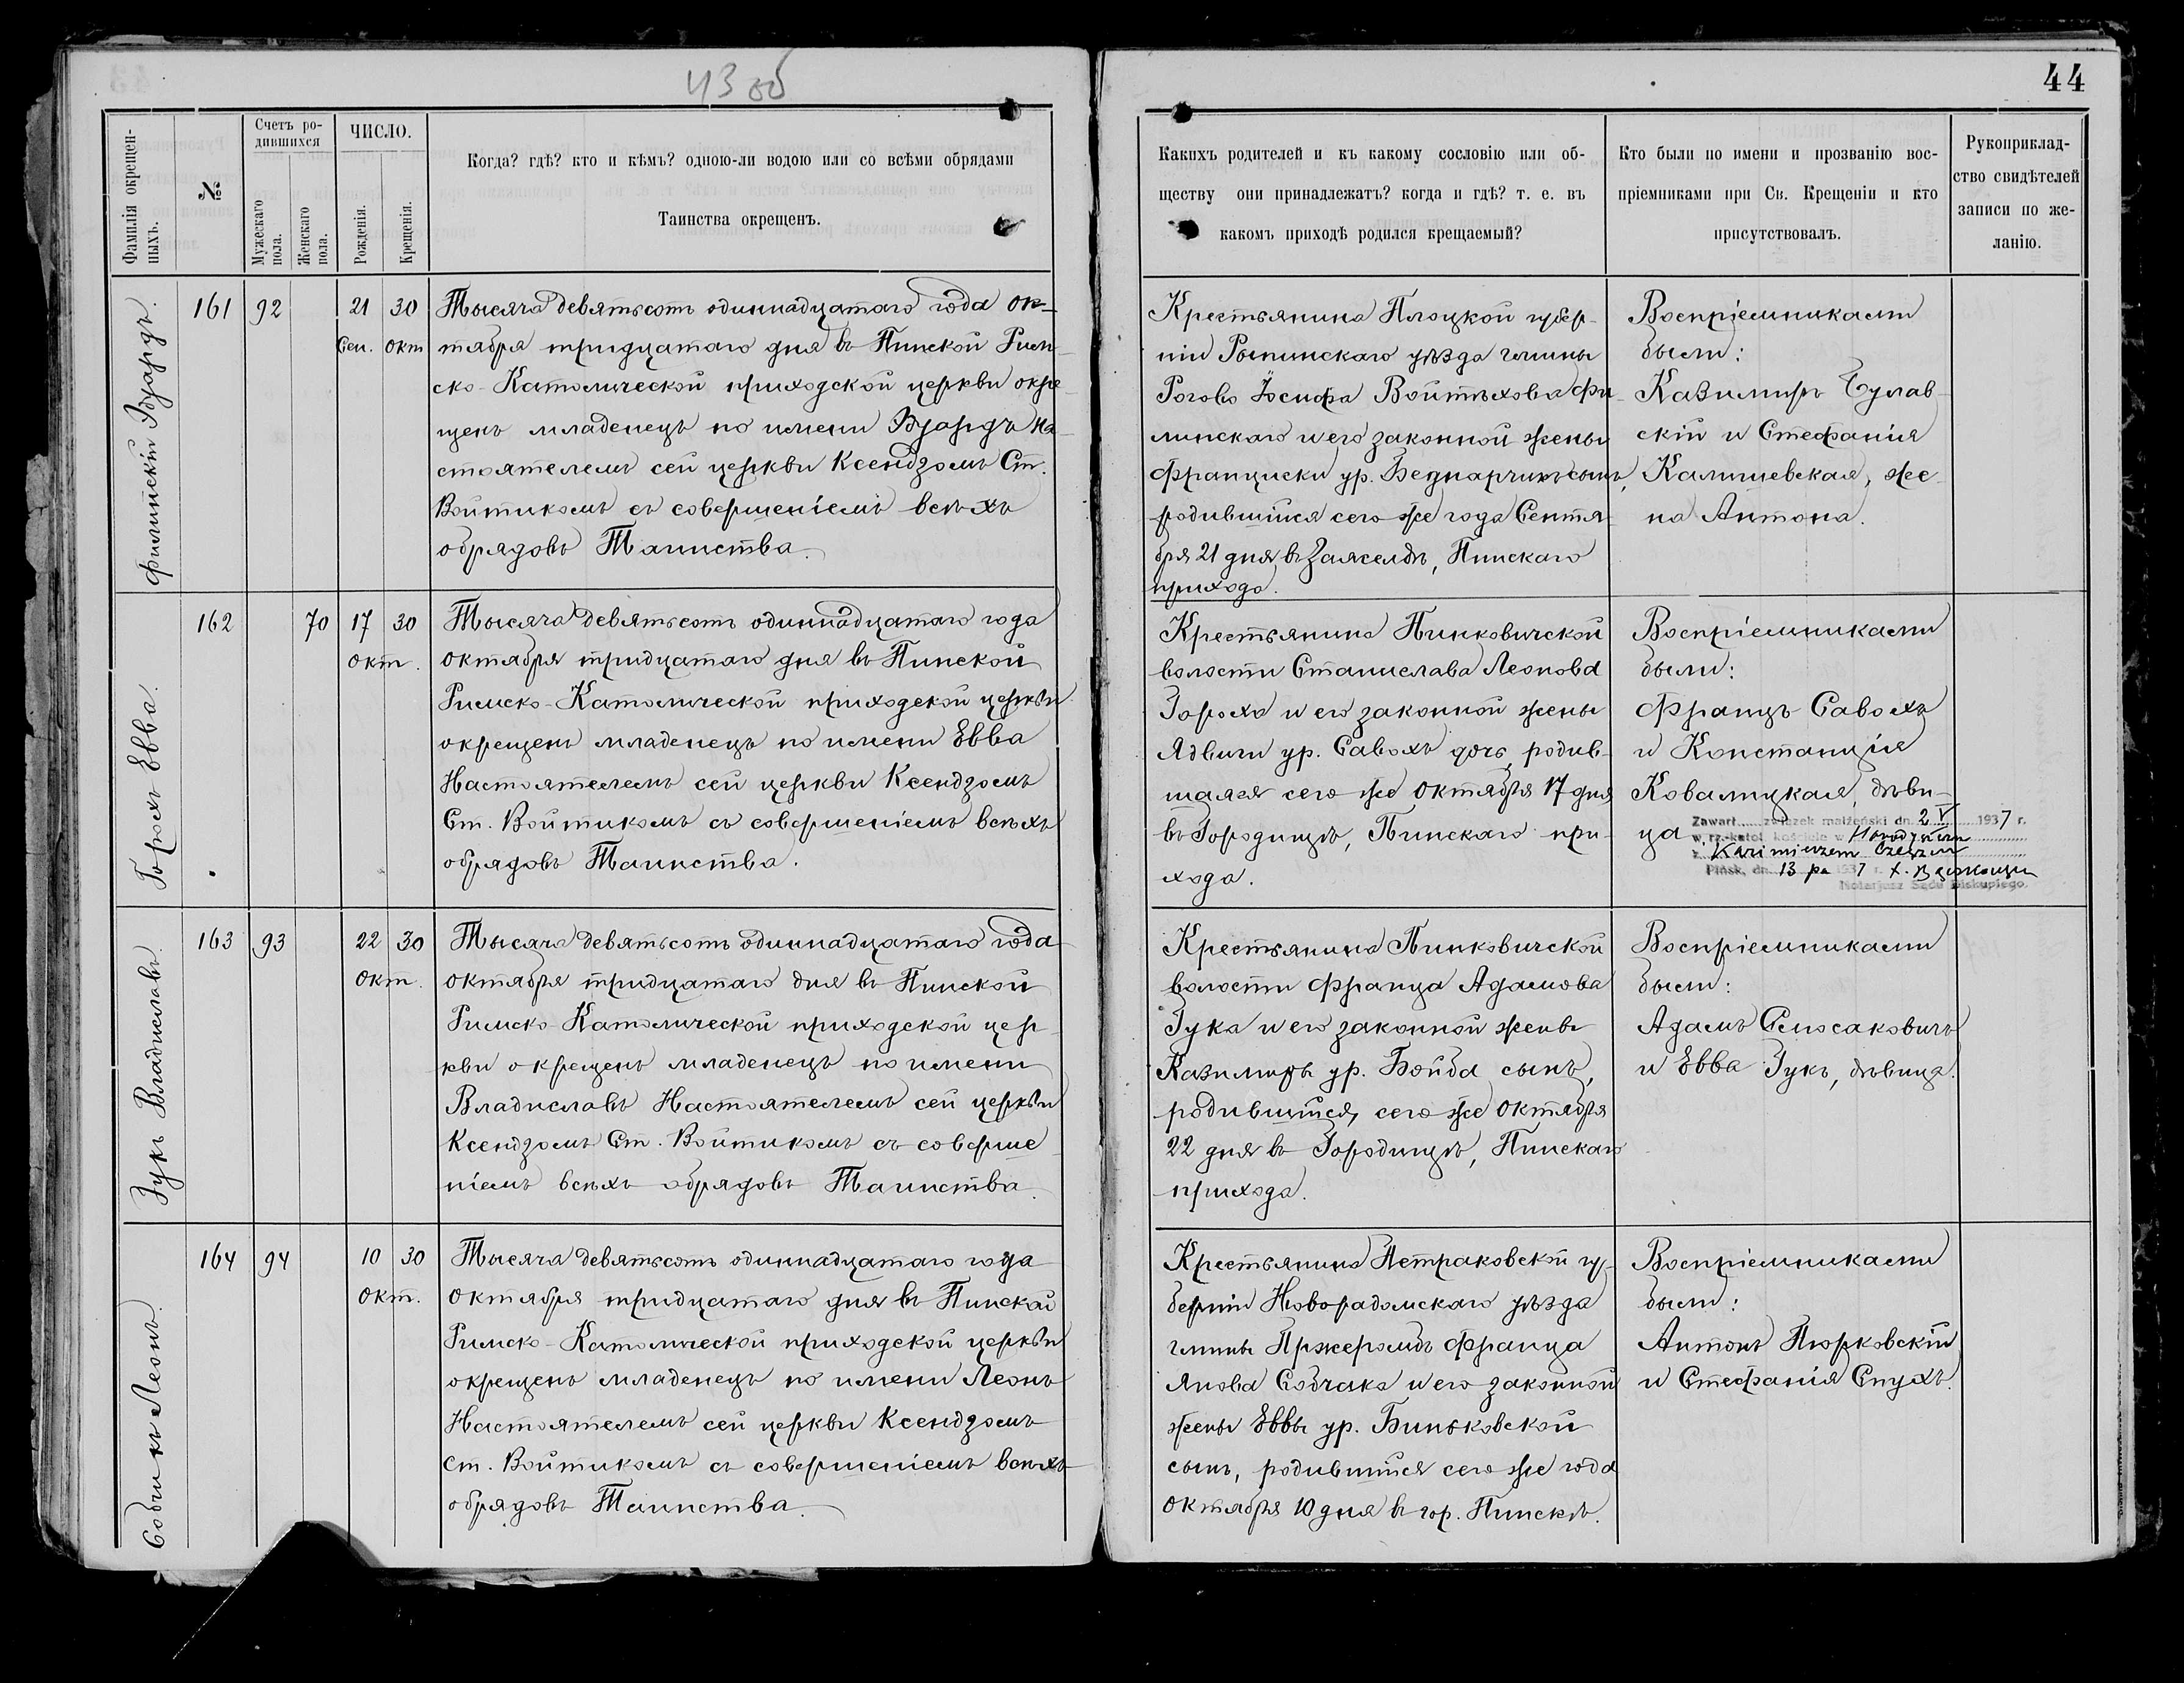 43 об
44
Фамилія окрещен-
ныхъ.
№
Счетъ ро-
дившихся
Мужескаго
пола.
Женскаго
пола.
ЧИСЛО.
Рожденія.
Крещенія.
Когда? гдѣ? кто и кѣмъ? одною-ли водою или со всѣми обрядами
Таинства окрещенъ.
Какихъ родителей и къ какому сословію или об-
ществу они принадлежатъ? когда и гдѣ? т. е. въ
какомъ приходѣ родился крещаемый?
Кто были по имени и прозванію вос-
пріемниками при Св. Крещеніи и кто
присутствовалъ.
Рукоприклад-
ство свидѣтелей
записи по же-
ланію.
Филипскій Эдуардъ.
161
92
21
Сен.
30
Окт
Тысяча девятьсотъ одиннадцатаго года Ок-
тября тридцатаго дня въ Пинской Рим-
ско-Католической приходской церкви окре-
щенъ младенецъ по имени Эдуардъ На-
стоятелемъ сей церкви Ксендзомъ Ст.
Войтикомъ съ совершеніемъ всѣхъ
обрядовъ Таинства.
Крестьянина Плоцкой губер-
ніи Рыпинскаго уѣзда гмины
Рогово Іосифа Войтѣхова Фи-
липскаго и его законной жены
Франциски ур. Беднарчикъ сынъ,
родившійся сего же года Сентя-
бря 21 дня въ Пинскаго
прихода.
Воспріемниками
были:
Казимиръ Булав-
скій и Стефанія
Калишевская, же-
на Антона.
Горохъ Евва.
162
70
17
Окт.
30
Тысяча девятьсотъ одиннадцатаго года
Октября тридцатаго дня въ Пинской
Римско-Католической приходской церкви
окрещенъ младенецъ по имени Евва
Настоятелемъ сей церкви Ксендзомъ
Ст. Войтикомъ съ совершеніемъ всѣхъ
обрядовъ Таинства.
Крестьянина Пинковичской
волости Станислава Леонова
Гороха и его законной жены
Ядвиги ур. Савохъ дочь, родив-
шаяся сего же Октября 17 дня
въ Городищѣ, Пинскаго при-
хода.
Воспріемниками
были:
Францъ Савохъ
и Констанція
Ковалицкая, дѣви-
ца.
Zawarł związek małżeński dn. 2 V 1937 r.
w rz.-katol. kościele w Horodyszczu
z Kazimierzem
Pińsk, dn. 13 1937 r. X.
Notarjusz Sądu Biskupiego.
Гукъ Владиславъ.
163
93
22
Окт.
30
Тысяча девятьсотъ одиннадцатаго года
Октября тридцатаго дня въ Пинской
Римско-Католической приходской цер-
кви окрещенъ младенецъ по имени
Владиславъ Настоятелемъ сей церкви
Ксендзомъ Ст. Войтикомъ съ соверше-
ніемъ всѣхъ обрядовъ Таинства.
Крестьянина Пинковичской
волости Франца Адамова
Гука и его законной жены
Казимиры ур. Бойба сынъ,
родившійся, сего же Октября
22 дня въ Городищѣ, Пинскаго
прихода.
Воспріемниками
были:
Адамъ Слюсаковичъ
и Евва Гукъ, дѣвица.
Собчакъ Леонъ.
164
94
10
Окт.
30
Тысяча девятьсотъ одиннадцатаго года
Октября тридцатаго дня въ Пинской
Римско-Католической приходской церкви
окрещенъ младенецъ по имени Леонъ
Настоятелемъ сей церкви Ксендзомъ
Ст. Войтикомъ съ совершеніемъ всѣхъ
обрядовъ Таинства.
Крестьянина Петраковской гу-
берніи Новорадомскаго уѣзда
гмины Пржеромбъ Франца
Янова Собчака и его законной
жены Еввы ур. Биньковской
сынъ, родившійся сего же года
Октября 10 дня въ гор. Пинскѣ.
Воспріемниками
были:
Антонъ Пюрковскій
и Стефанія Спухъ.